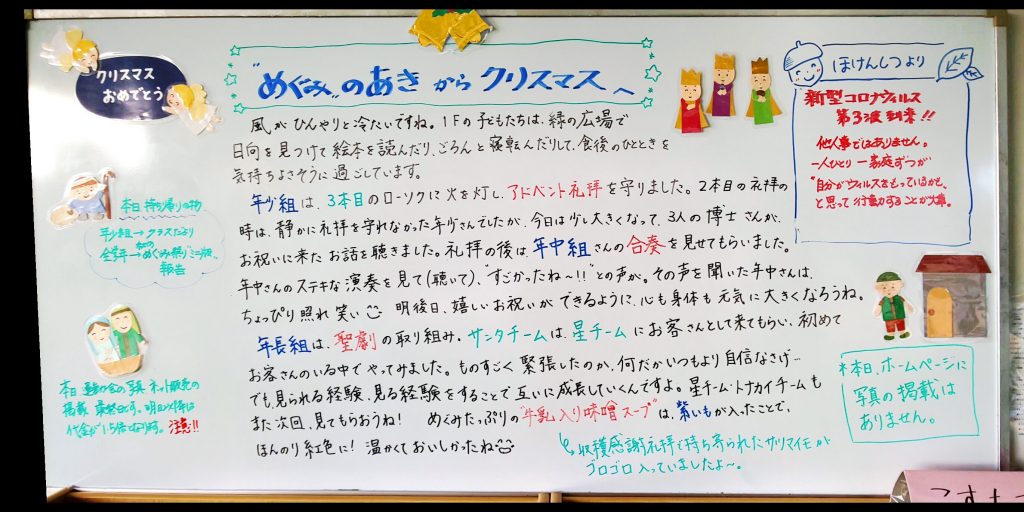 クリスマス
おめでとう
"めぐみ"のあきからクリスマスへ
風がひんやりと冷たいですね。1Fの子どもたちは、緑の広場で
日向を見つけて絵本を読んだり、ごろんと寝転んだりして、食後のひとときを
気持ちよさそうに過ごしています。
年少組は、3本目のローソクに火を灯し、アドベント礼拝を守りました。2本目の礼拝の
時は、静かに礼拝を守れなかった年少さんでしたが、今日は少し大きくなって、3人の博士さんが、
お祝いに来たお話を聴きました。礼拝の後は、年中組さんの合奏を見せてもらいました。
年中さんのステキな演奏を見て(聴いて)、"すごかったね〜!!"との声が。その声を聞いた年中さんは、
ちょっぴり照れ笑い 明後日、嬉しいお祝いができるように、心も身体も元気に大きくなろうね。
年長組は、聖劇の取り組み。サンタチームは、星チームにお客さんとして来てもらい、初めて
お客さんのいる中でやってみました。ものすごく緊張したのか、何だかいつもより自信なさげ…
でも、見られる経験、見る経験をすることで互いに成長していくんですよ。星チーム・トナカイチームも
また次回、見てもらおうね! めぐみたっぷりの"牛乳入り味噌スープ"は、紫いもが入ったことで、
ほんのり紅色に! 温かくておいしかったね
収穫感謝礼拝で持ち寄られたサツマイモが
ゴロゴロ入っていましたよ〜。
本日持ち帰りの物
年少組→クラスだより
全学年→めぐみ祭り"ミニ版"
報告
本日 運動会の写真 ネット販売の
掲載 最終日です。明日以降は
代金が1.5倍になります。注意!!
ほけんしつより
新型コロナウィルス
第3波到来!!
他人事ではありません。
一人ひとり 一家庭ずつが
"自分がウィルスをもっているかも、
と思って行動することが大事。
*本日、ホームページに
写真の掲載は
ありません。